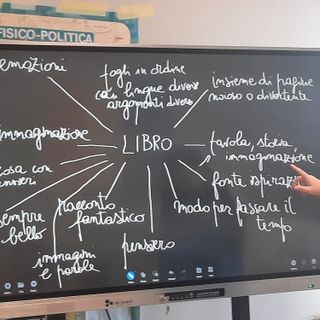 FISICO-POLITICA
emozioni
fogli in ordine
con lingue diverse
argomenti diversi
insieme di pagine
noioso o divertente
immaginazione
LIBRO
favola, storia,
immaginazione
cosa con
fonte ispirazi
sempre
bello
racconto
fantastico
modo per passare il
tempo
immagini
e parole
pensiero